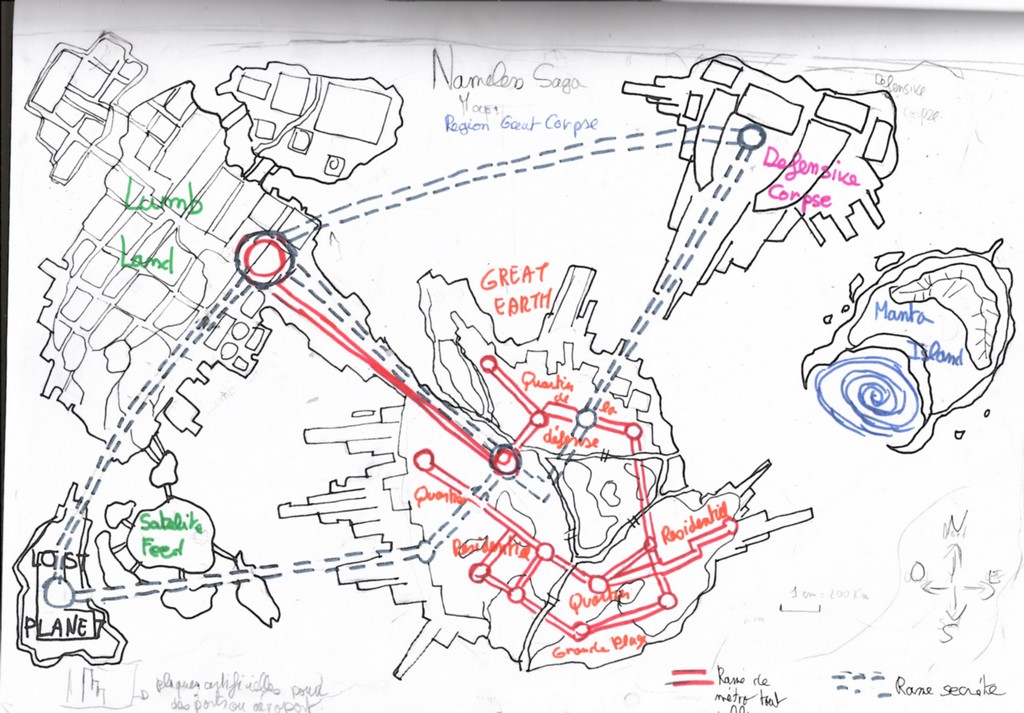 Nameless Saga
Region Great Corpse
Defensive
Corpse
Defensive
Corpse
Lumb
Land
GREAT
EARTH
Manta
Island
Quartier
de la
défense
Quartier
Residentiel
Residentiel
Quartier
Grande Plage
Satelite
Feed
LOIST
PLANET
N
O E
S
1 cm = 200 Km
plaques artificielles pour
des ports ou aéroport.
Rame de
métro tout
Rame secrète